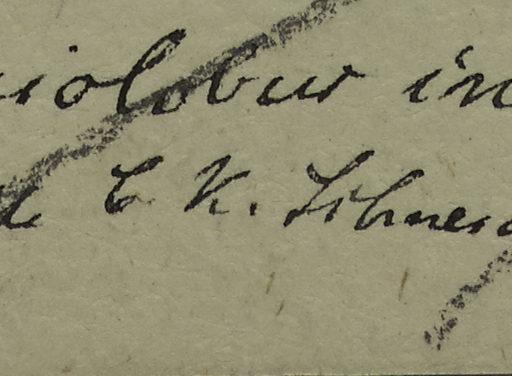 iolobus in
C. K. Schneid